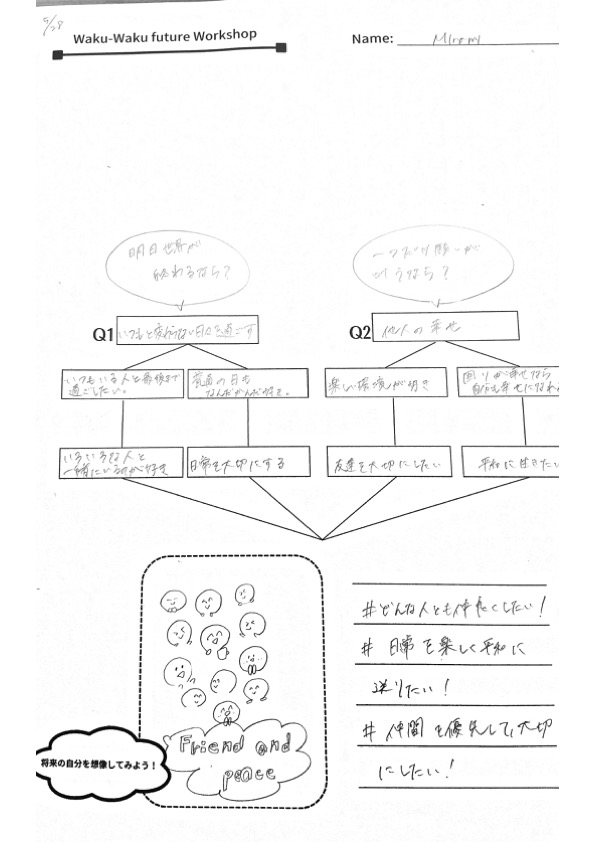 5/28
Waku-Waku future Workshop
Name: Miromi
明日世界が
終わるなら?
一つだけ願いが
叶うなら?
Q1 いつもと変わらない日々を過ごす
Q2 他人の幸せ
いつもいる人と最後まで
過ごしたい。
普通の日も
なんだかんだ好き。
楽しい環境が好き
周りが幸せなら
自分も幸せになれ
いろいろな人と
一緒にいるのが好き
日常を大切にする
友達を大切にしたい
平和に生きたい
#どんな人とも仲良くしたい!
# 日常を楽しく平和に
送りたい!
# 仲間を優先して、大切
にしたい!
Friend and
peace
将来の自分を想像してみよう!